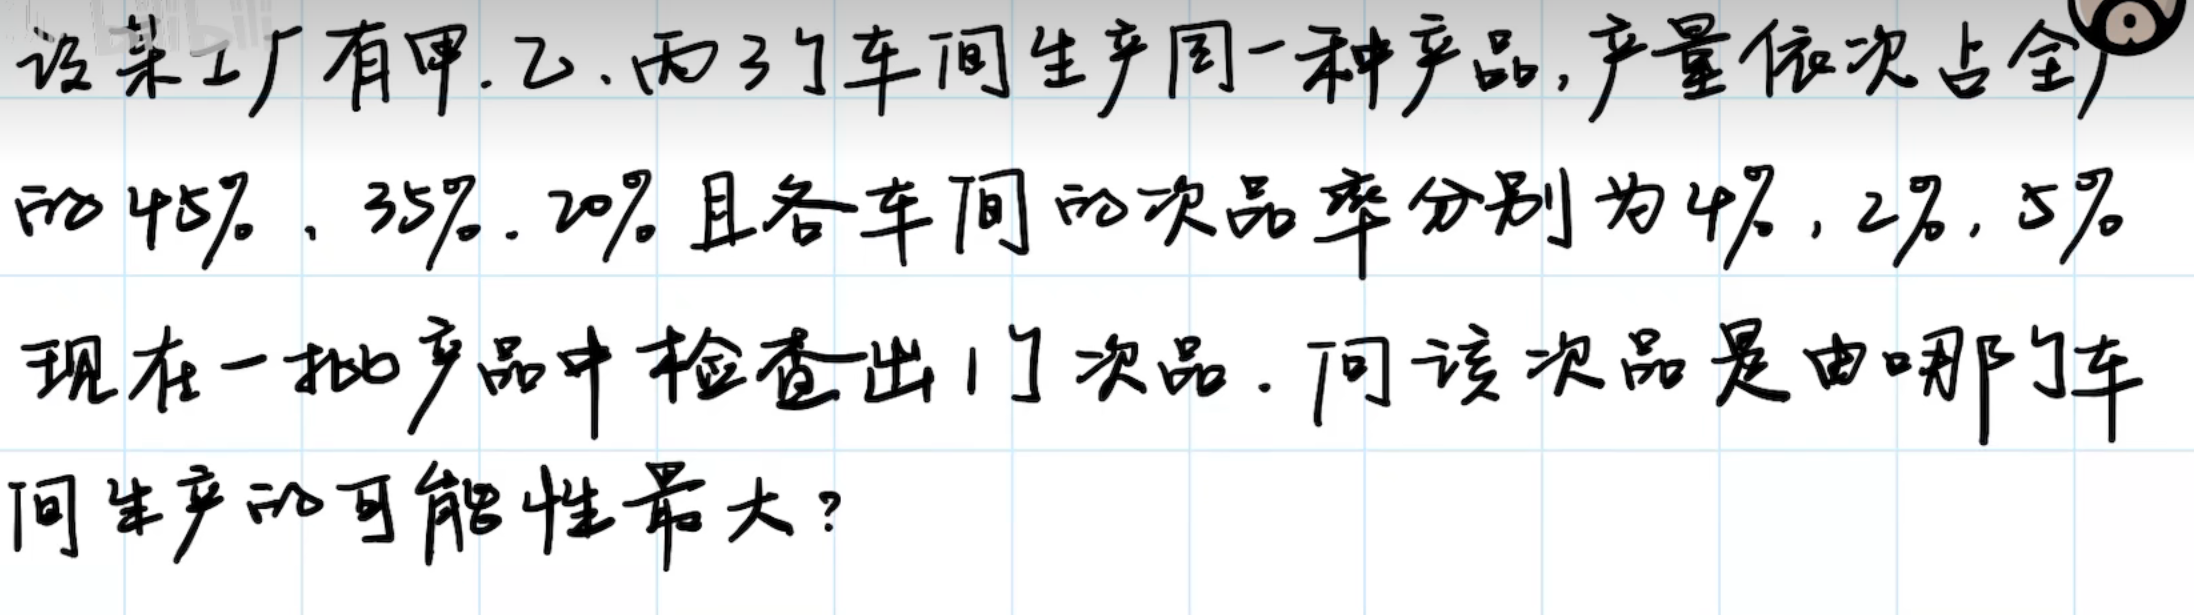 bilibili
设某工厂有甲.乙、丙3个车间生产同一种产品,产量依次占全厂
的45%、35%.20%且各车间的次品率分别为4%,2%,5%
现在一批产品中检查出1个次品.问该次品是由哪个车
间生产的可能性最大?